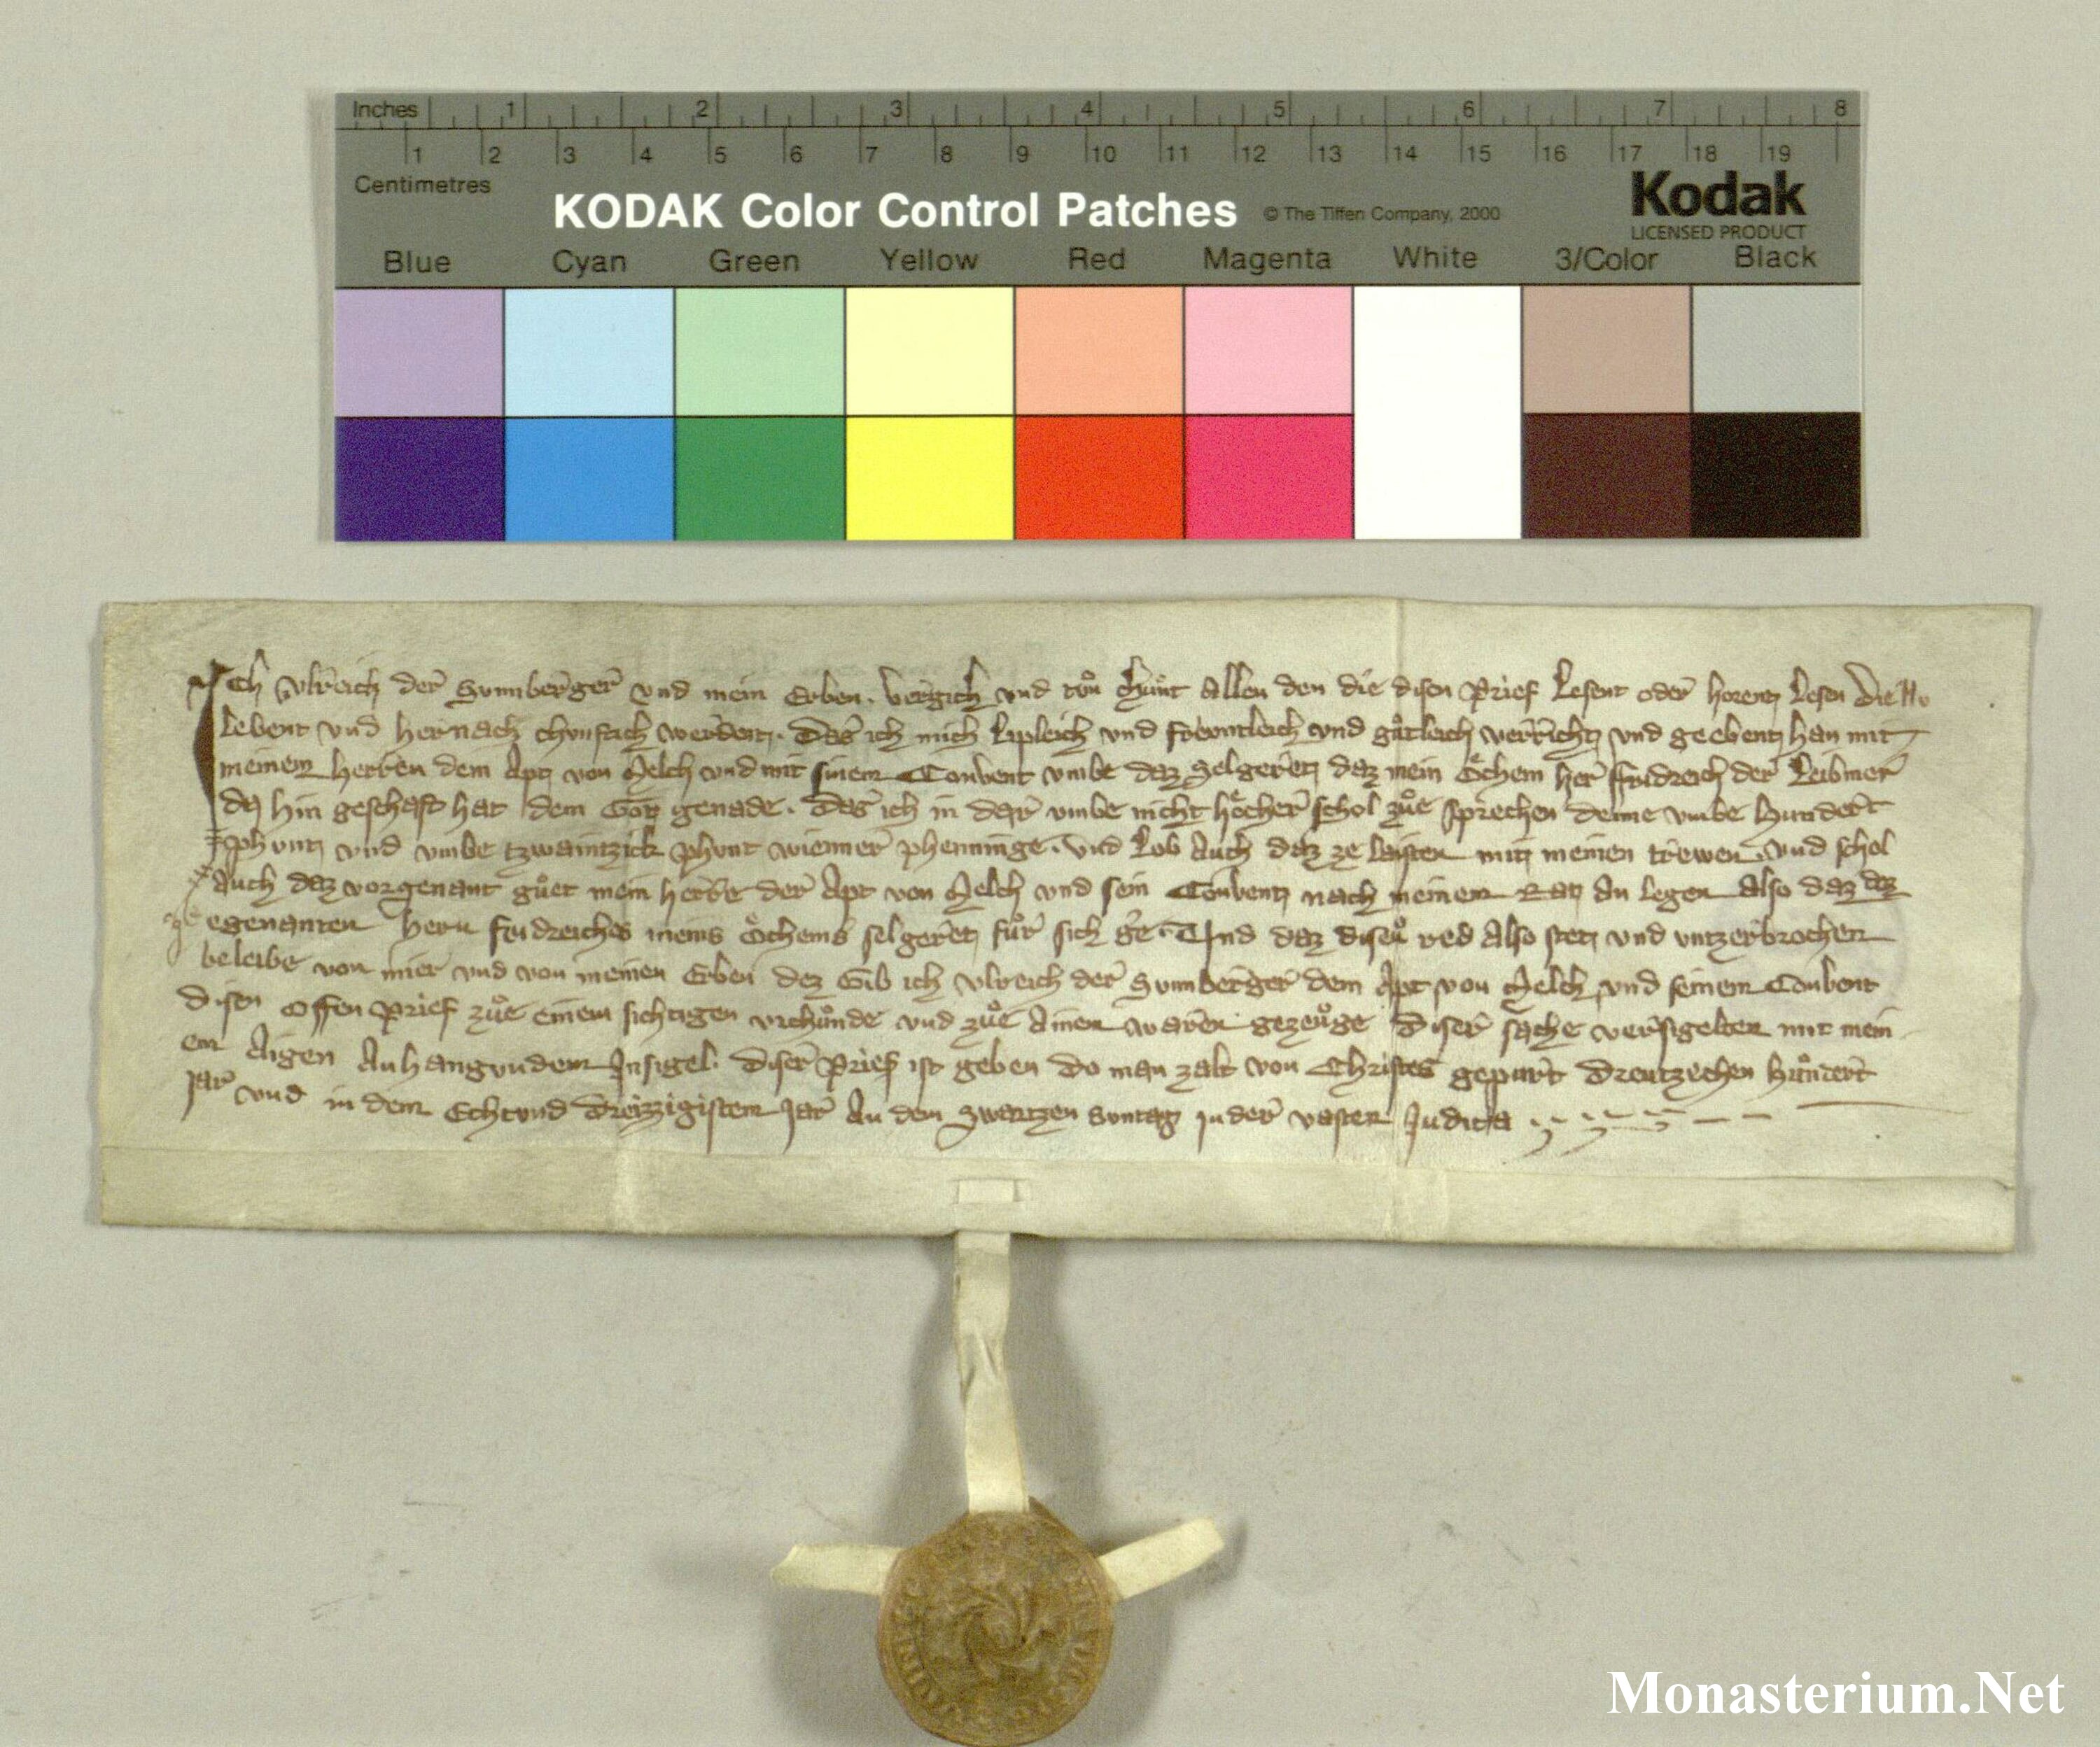 Inches 1 2 3 4 5 6 7 8
1 2 3 4 5 6 7 8 9 10 11 12 13 14 15 16 17 18 19
Centimetres
KODAK Color Control Patches © The Tiffen Company, 2000 Kodak
LICENSED PRODUCT
Blue Cyan Green Yellow Red Magenta White 3/Color Black
Ich Ulreich der Sunnberger vnd mein Erben vergich vnd tůn chůnt allen den die disen prief lesent oder horent lesen die nu
lebent vnd hernach chunftich werdent. Das ich mich liepleich vnd freuntleich vnd gůtleich verricht vnd geebent han mit
meinem herren dem Apt von Melch vnd mit sinem Conuent vmbe daz selgeret daz mein Öchem her ffridreich der Leibmer
da hin geschaft hat dem Got genade. Das ich in dar vmbe nicht höcher schol zůe sprechen denne vmbe hundert
phunt vnd vmbe tzwaintzick phunt wienner phenninge. vnd lob auch daz ze laisten mit meinen trewen. vnd schol
auch daz vorgenant gůet mein herre der Apt von Melch vnd sein Conuent nach meinem Rat an legen also daz dez
egenanten hern fridreiches meins Öchems selgeret fůr sich ge. Vnd daz diseů red also stet vnd vntzerbrochen
beleibe von mier vnd von meinen Erben dez Gib ich Vlreich der Sunnberger dem Apt von Melch vnd seinem Conuent
disen offen prief zůe einem sichtigen vrchůnde vnd zůe ainen waren gezeůge diser sache versigelten mit mein
em aigen anhangundem Insigel. diser prief ist geben do man zalt von Christes gepurt dreutzehen hůndert
Jar vnd in dem Echtvnd dreizzigistem Jar an dem Swartzen Suntag in der vasten Judica
Monasterium.Net